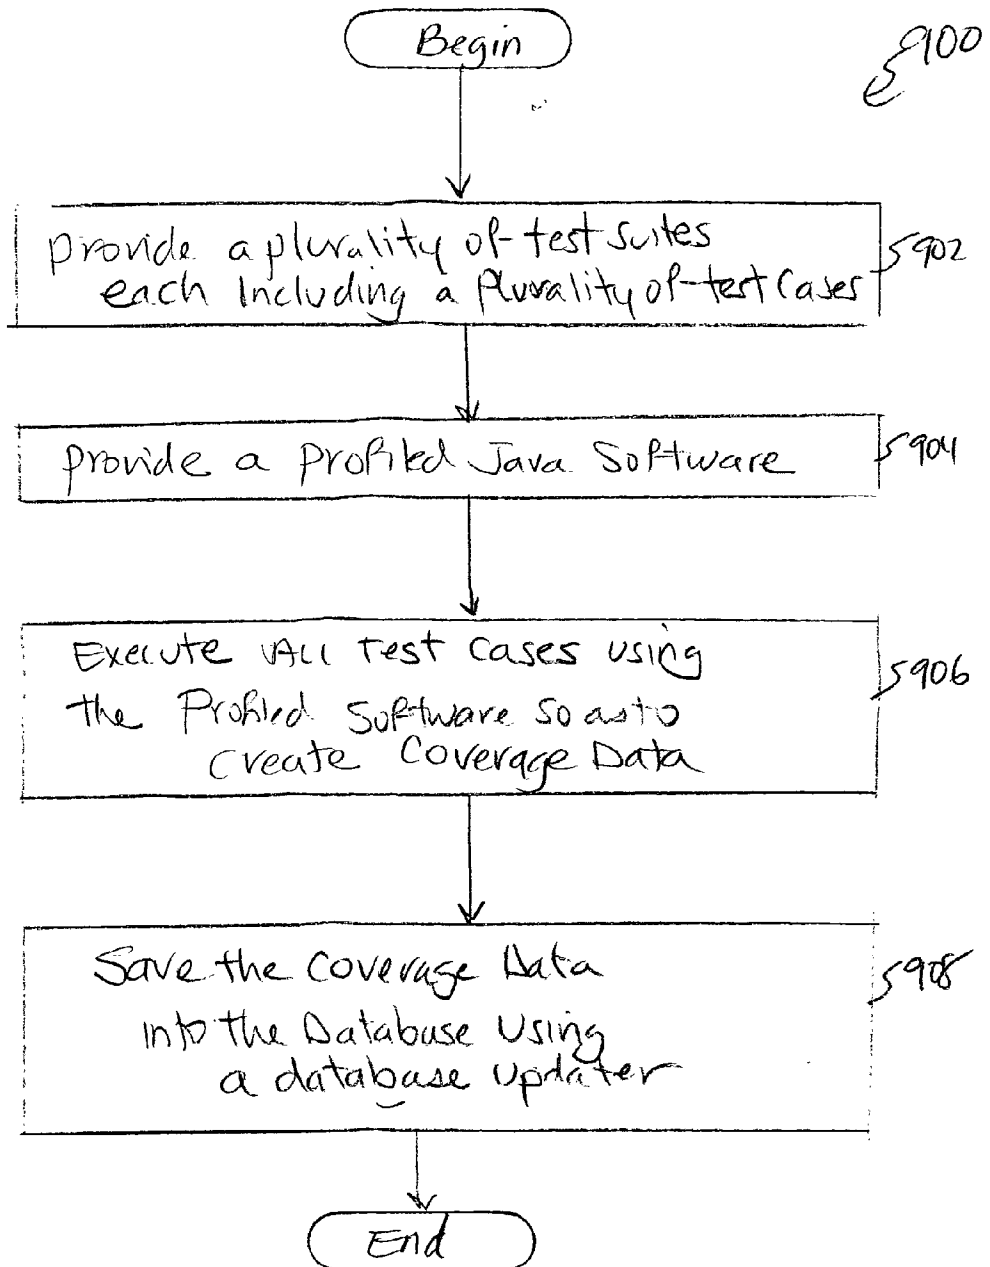 Begin
900
provide a plurality of test suites
each Including a plurality of test cases
902
provide a Profiled Java Software
904
Execute All Test Cases using
the Profiled Software so as to
create Coverage Data
906
Save the Coverage Data
into the Database Using
a database updater
908
End